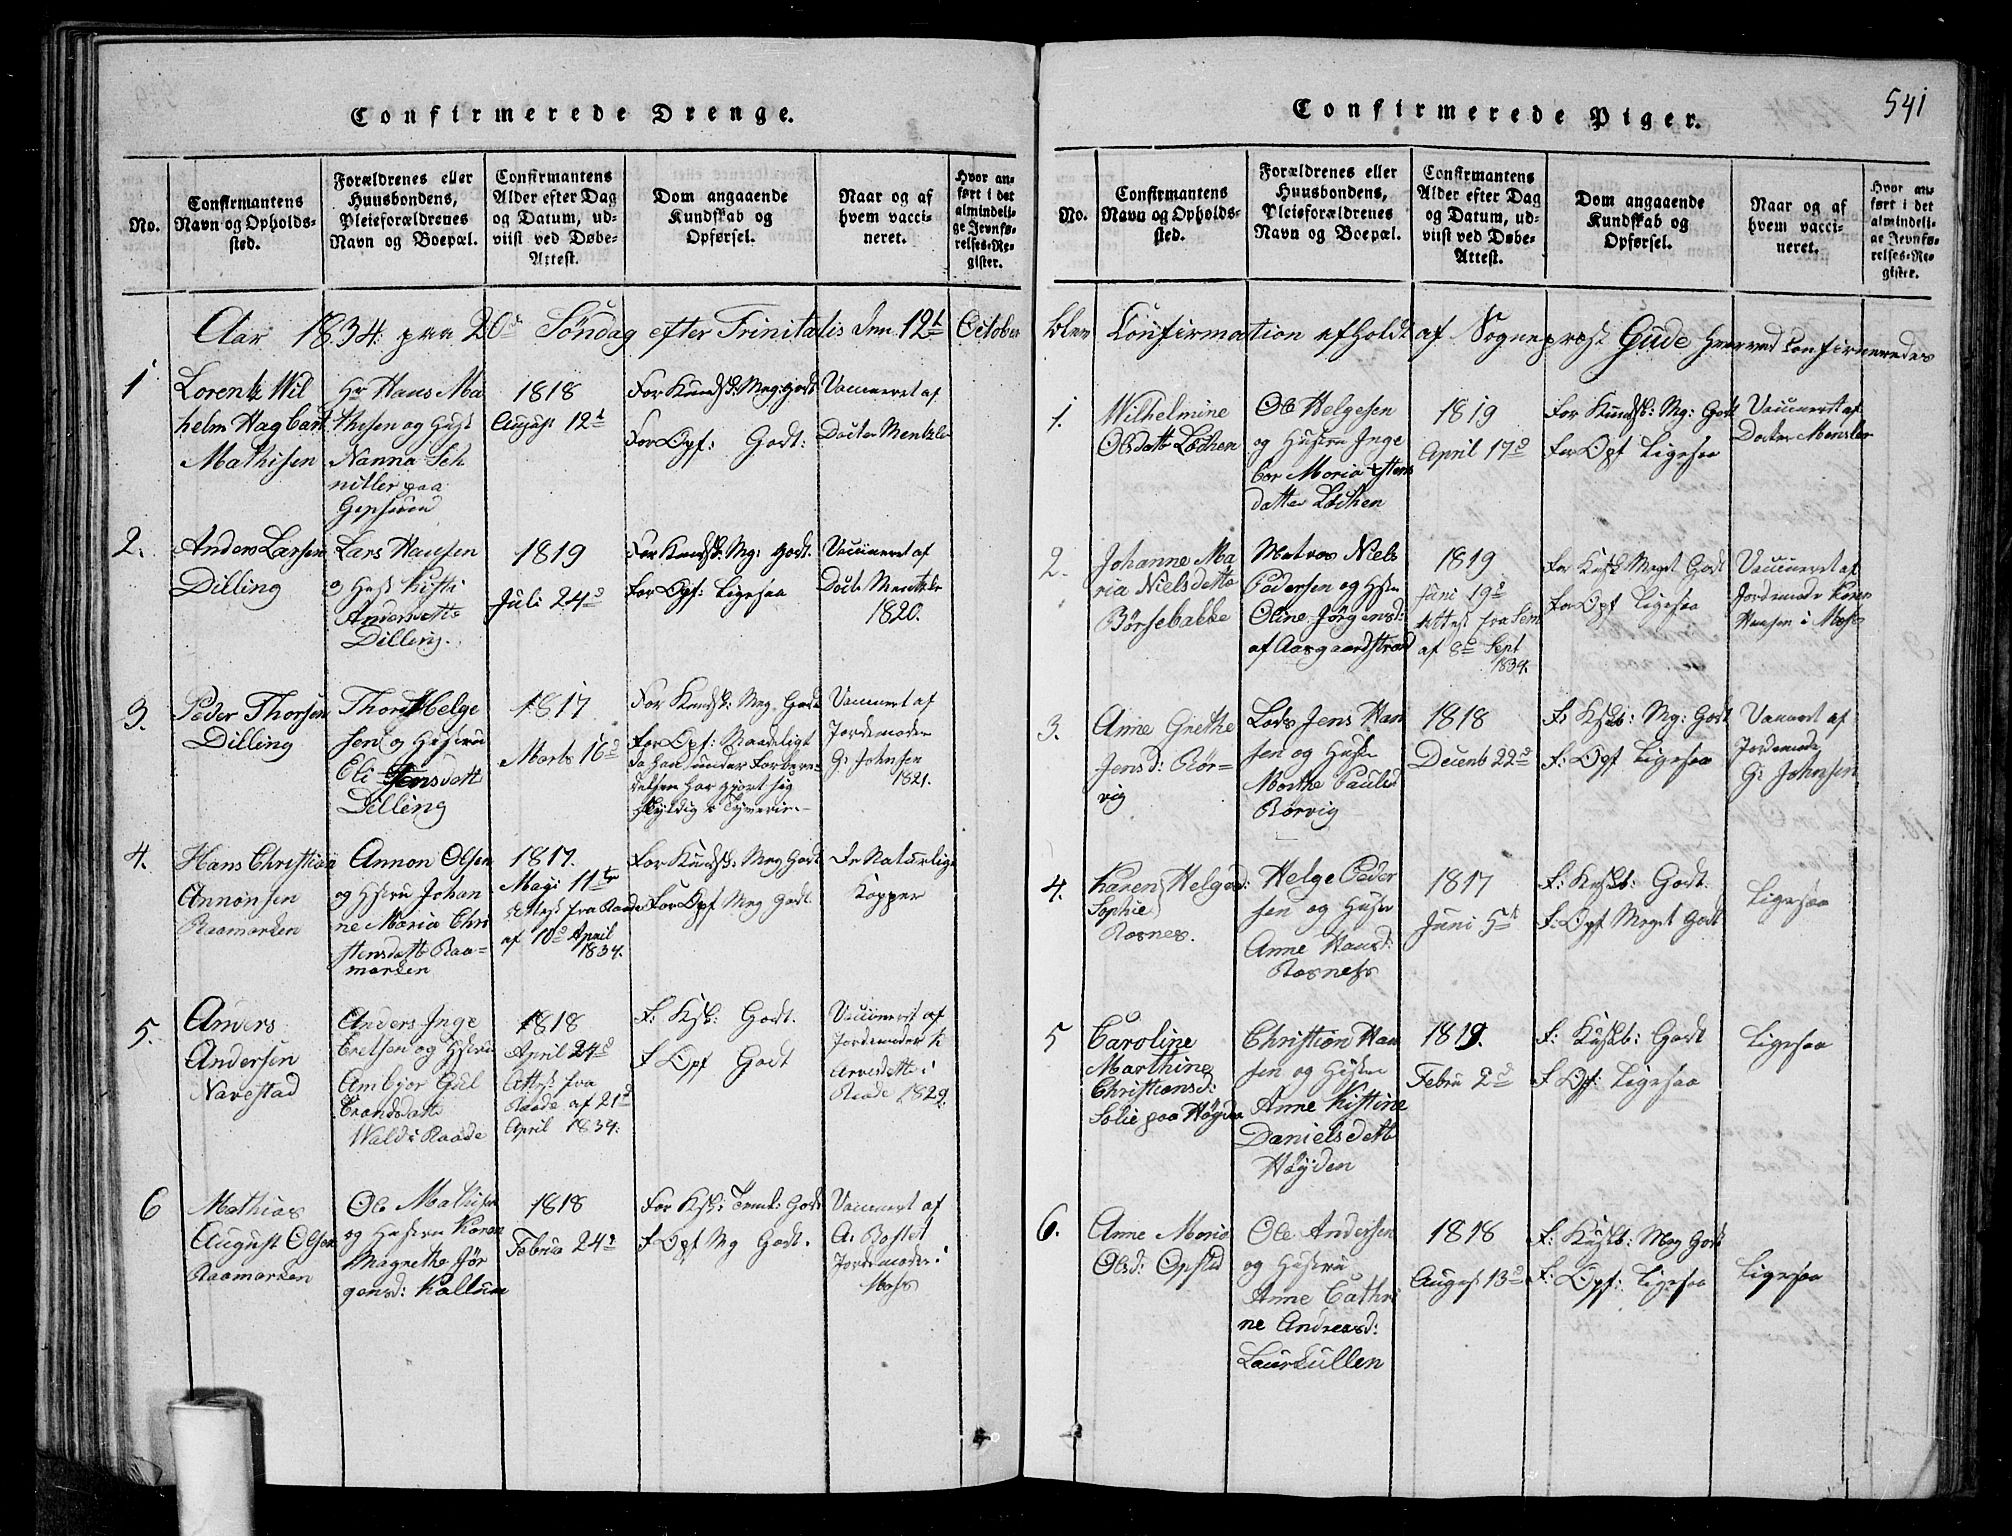 Confirmerede Drenge.
No.
Confirmantens
Navn og Opholds-
sted.
Forældrenes eller
Huusbondens,
Pleieforældrenes
Navn og Boepæl.
Confirmantens
Alder efter Dag
og Datum, ud-
viist ved Døbe-
Attest.
Dom angaaende
Kundskab og
Opførsel.
Naar og af
hvem vacci-
neret.
Hvor an-
ført i det
almindeli-
ge Jevnfø-
relses-Re-
gister.
Aar 1834 paa 20de Söndag efter Trinitatis den 12t October
1
Lorentz Wil
helm Hagbart
Mathisen
Hr Hans Ma
thesen og Hust
Nanna Sch
niller paa
1818
August 12t
For Kundsk: Meg: godt
For Opf: Godt:
Vaccineret af
Docter Mentzler
2.
Anders Larsen
Dilling
Lars Hansen
og Hust Kisti
Andersdatte
Dilling.
1819
Juli 24d
For Kundsk: Mg: Godt.
For Opf: Ligesaa
Vaccineret af
Docte Mentzler
1820.
3.
Peder Thorsen
Dilling
Thor Helge
sen og Hustru
Eli Jensdatt
Dilling
1817
Marts 16d
For Kundsk: Meg. Godt
For Opf: Maadeligt
da han under Forbere-
delsen har gjort sig
skyldig i Tyverie
Vaccineret af
Jordemoder
G: Johnsen
1821.
4.
Hans Christian
Annonsen
Raamarken
Annon Olsen
og Hustru Johan
ne Maria Chri
stensdatt Raa-
marken
1817.
Maji 11te
Attest fra Raade
af 10d April
1834.
For Kundsk: Meg Godt
For Opf Meg Godt.
De Naturlige
Kopper
5.
Anders
Andersen
Navestad
Anders Inge
bretsen og Hustru
Ambjor Gul
brandsdatte
Wald i Raade
1818
April 24d
Attest fra
Raade af 21d
April 1834.
F: Ksk: Godt.
F Opf Godt
Vaccineret af
Jordemoder K
Arvesdatte i
Raade 1829.
6
Mathias
August Olsen
Raamarken
Ole Mathisen
og Hustru Karen
Magrethe Jör
gensd: Kallum
1818
Februa 24d
For Ksk: Teml: Godt
F Opf Mg Godt.
Vaccineret af
A. Bastet
Jordemoder i
Moss
Confirmerede Piger.
541
No.
Confirmantens
Navn og Opholds-
sted.
Forældrenes eller
Huusbondens,
Pleieforældrenes
Navn og Boepæl.
Confirmantens
Alder efter Dag
og Datum, ud-
viist ved Døbe-
Attest.
Dom angaaende
Kundskab og
Opførsel.
Naar og af
hvem vacci-
neret.
Hvor an-
ført i det
almindeli-
ge Jevnfø-
relses-Re-
gister.
blev Confirmation afholdt af Sogneprest Gude hvorved Confirmeredes
1.
Wilhelmine
Olsdatte Lochen
Ole Helgesen
og Hustru Inge
bor Maria Stens
datter Lochen
1819
April 17d
For Kundsk: Mg: Godt
For Opf Ligesaa
Vaccineret af
Docter Mensler
2.
Johanne Ma
ria Nielsdatte
Börsebakke
Matros Niels
Pedersen og Hustr
Oline Jörgensd:
af Aasgaardstrand
1819
Juni 19d
Attest fra Sem
af 8d Sept
1834.
For Kusk Meget Godt
For Opf Ligesaa
Vaccineret af
Jordemode Karen
Hansen i Moss
3.
Anne Grethe
Jensd: Rör-
vig
Lods Jens Han
sen og Hustr
Marthe Paulsd
Rörvig
1818
Decemb 22d
F: Kskb: Mg: Godt
F: Opf Ligesaa
Vaccineret af
Jordemode
G: Johnsen
4.
Karen Helgesd:
Sophie
Rosnes.
Helge Peder
sen og Hustr
Anne Hansd:
Rosness
1817
Juni 5t
F: Kuskb: Godt.
F: Opf Meget Godt
Ligesaa
5
Caroline
Marthine
Christiansd:
Solie paa Höyden
Christian Han
sen og Hustr
Anne Kistine
Danielsdatte
Höyden
1819.
Febru 2d
F: Kuskb: Godt
F. Opf: Ligesaa
Ligesaa
6.
Anne Maria
Olsd: Opstad
Ole Andersen
og Hustru
Anne Cathri
ne Andreasd:
Laurkullen
1818
August 13d
F: Kuskb: Meg Godt
F: Opf: Ligesaa
Ligesaa